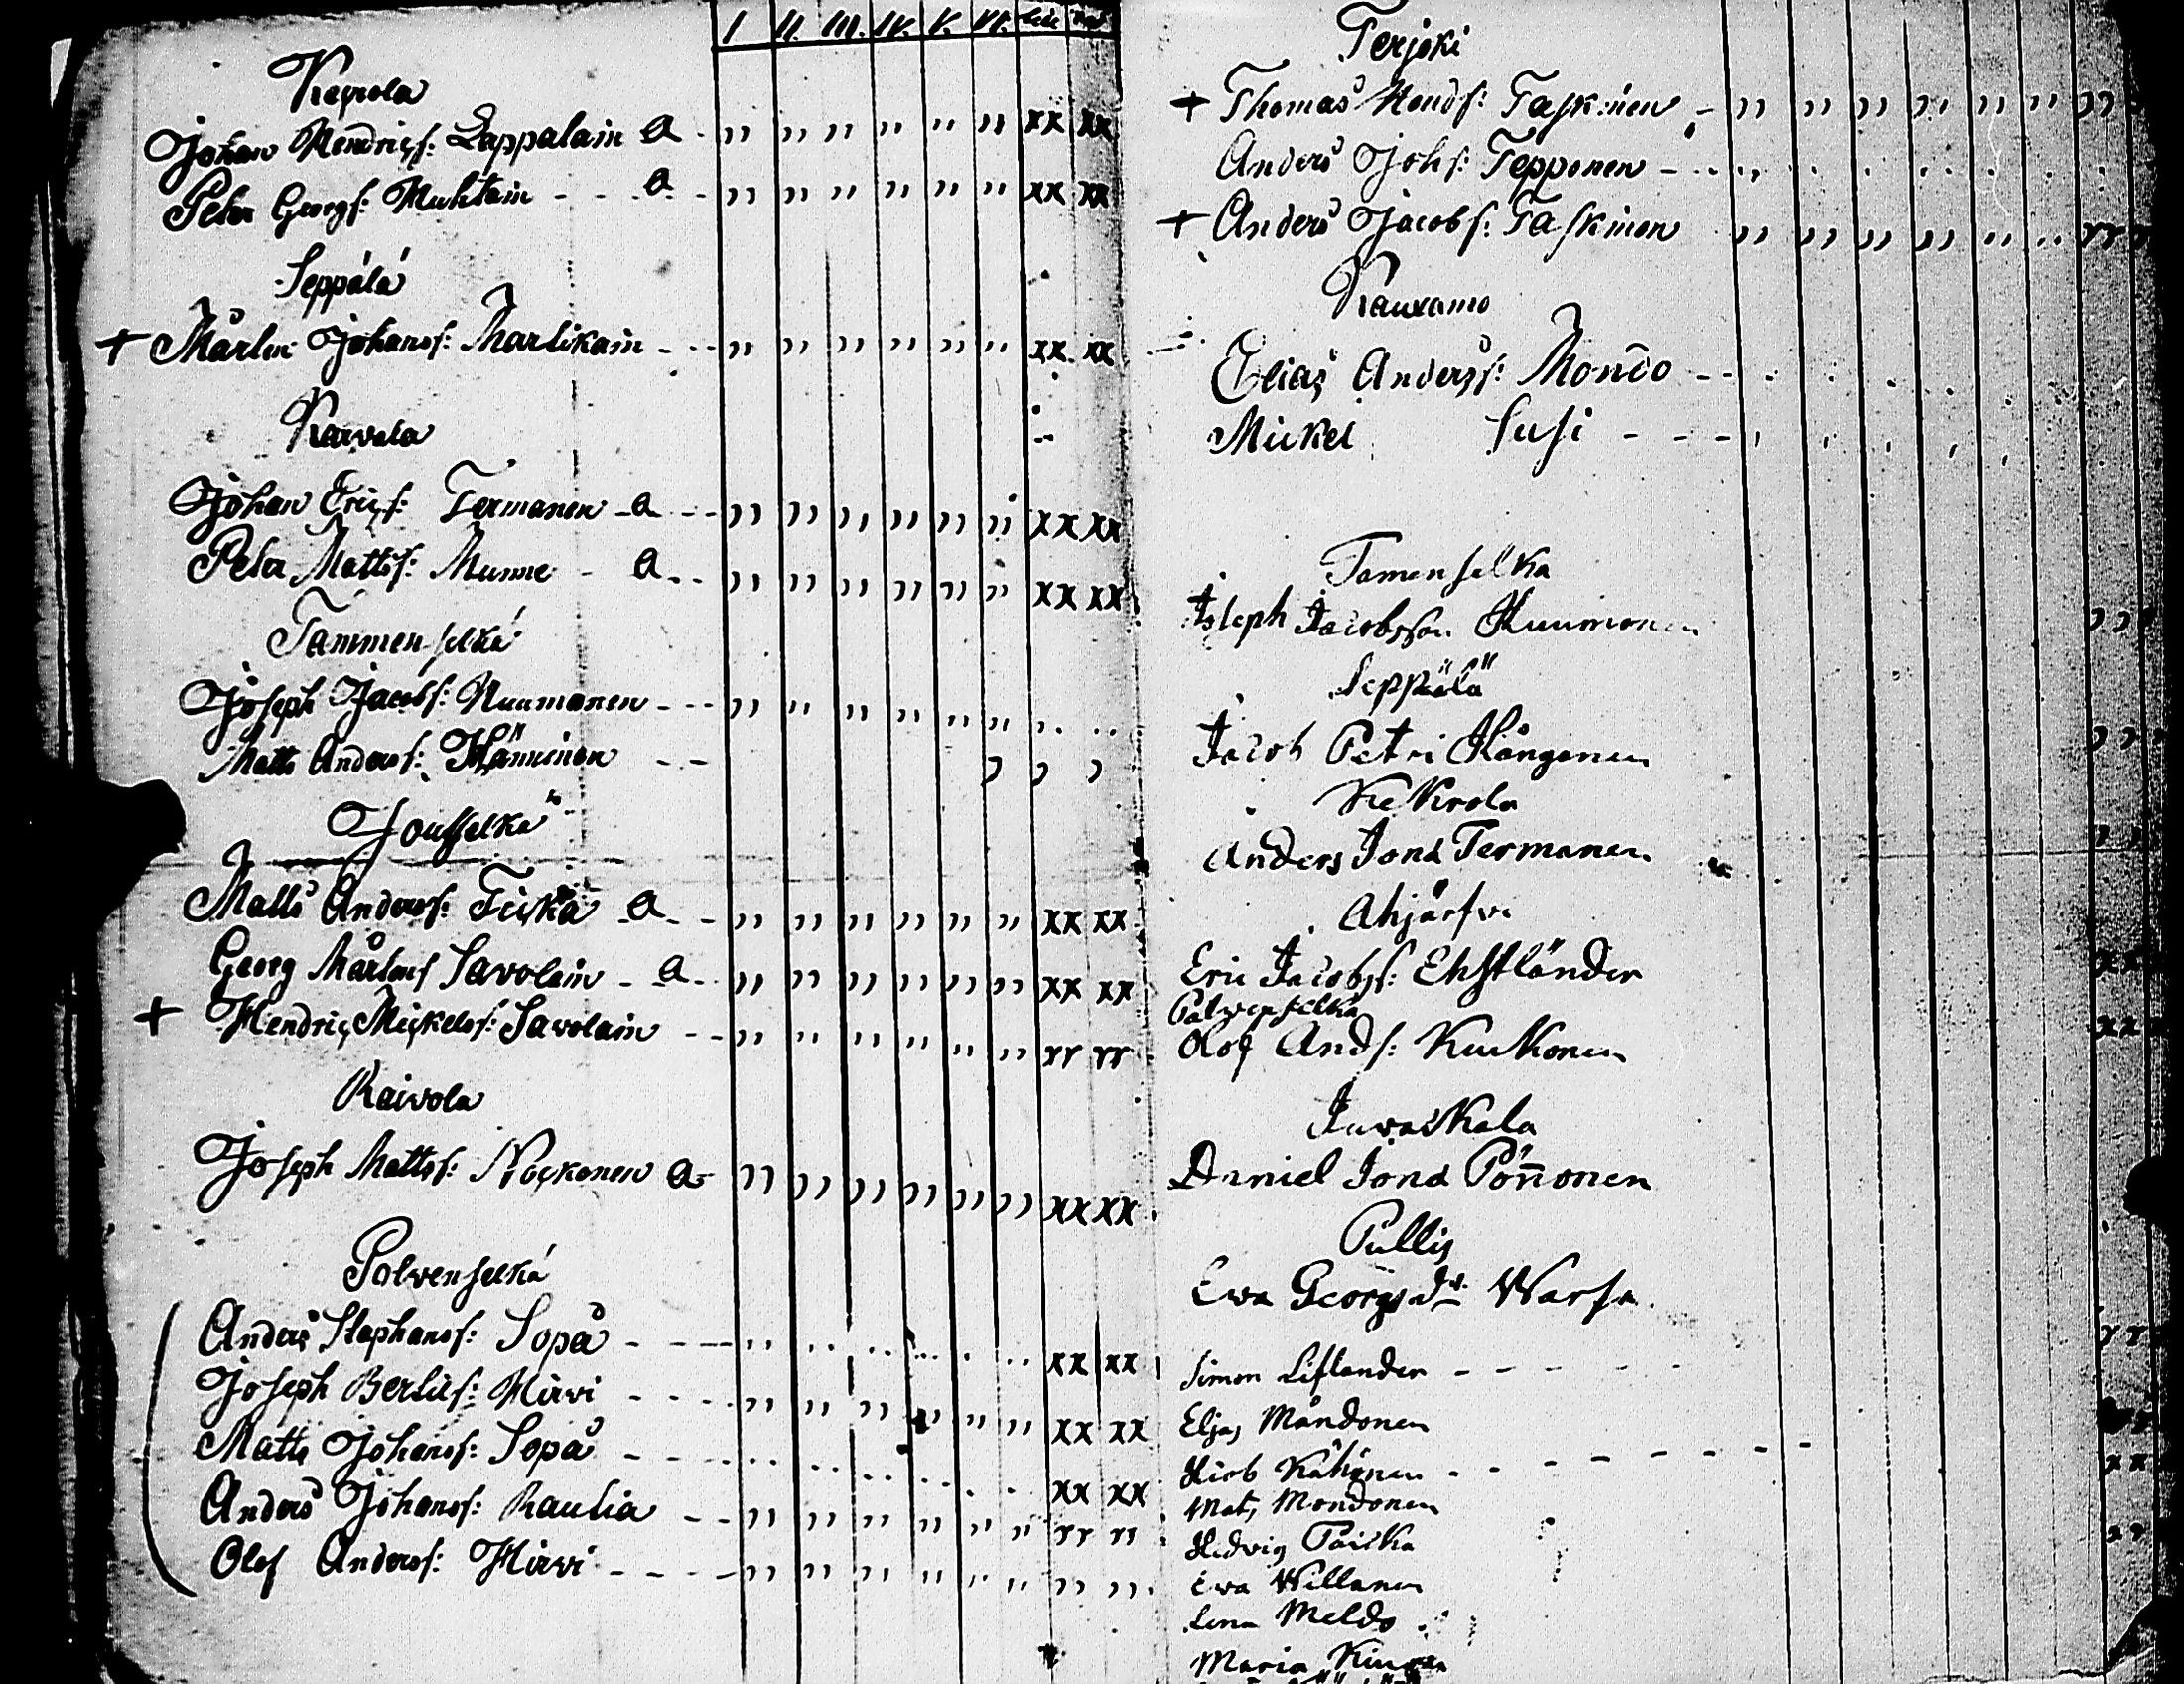 I II. III. IV. V. VI.
Kekrola
Johan Hendrics: Lappalain a - ,, ,, ,, ,, ,, ,, xx xx
Petr Georgs: Muhtain - - a - ,, ,, ,, ,, ,, ,, xx xx
Seppälä
+ Mårten Johans: Martikain - - ,, ,, ,, ,, ,, ,, xx xx
Karvala
Johan Erics: Termanen - a - - ,, ,, ,, ,, ,, ,, xx xx
Petr Matts: Munne - a - - ,, ,, ,, ,, ,, ,, xx xx
Tammenselkä
Joseph Jacobs: Nuumanen - - - ,, ,, ,, ,, ,, ,,
Matts Anders: Hänninen - - , , ,
Jousselkä
Matts Anders: Teickä a - - ,, ,, ,, ,, ,, ,, xx xx
Georg Mårtens Savolain - a - ,, ,, ,, ,, ,, ,, xx xx
+ Hendric Mickels: Savolain - - ,, ,, ,, ,, ,, ,, rr rr
Raivola
Joseph Matts: Nockonen a - ,, ,, ,, ,, ,, ,, xx xx
Polvenselkä
Anders Stephans: Sopa - - - xx xx
Joseph Bertils: Hirvi - - - ,, ,, ,, ,, ,, ,, xx xx
Matts Johans: Sopa - xx xx
Anders Johans: Raulia - - ,, ,, ,, ,, ,, ,, rr rr
Olof Anders: Hirvi - - - - ,, ,, ,, ,, ,, ,, ,, ,,
Terjoki
+ Thomas Hends: Taskinen - ,, ,, ,, ,, ,, ,, ,,
Anders Johs: Tepponen -
+ Anders Jacobs: Taskinen ,, ,, ,, ,, ,, ,, rr
Rauxamo
Elias Anderss: Mondo - -
Mickel Susi - - -
Tamenselka
Joseph Jacobsson Nuumonen ,,
Seppälä
Jacob Petri Hänganen ,,
Kekrola
Anders Jona Termanen ,,
Ahjärfvi
Eric Jacobss: Ehstländer xx
Palvenselka
Olof Ands: Kuckonen xx
Juvaskala
Daniel Jona Pönonen
Pullis
Ewa Georgsdr. Warsa
Simon Liflander - - - rr
Eljas Mändonen
Hiob Kähönen - - - - - - - xx
Mats Mondonen
Hedvig Paicka
Ewa Willanen
Lena Meldo
Maria